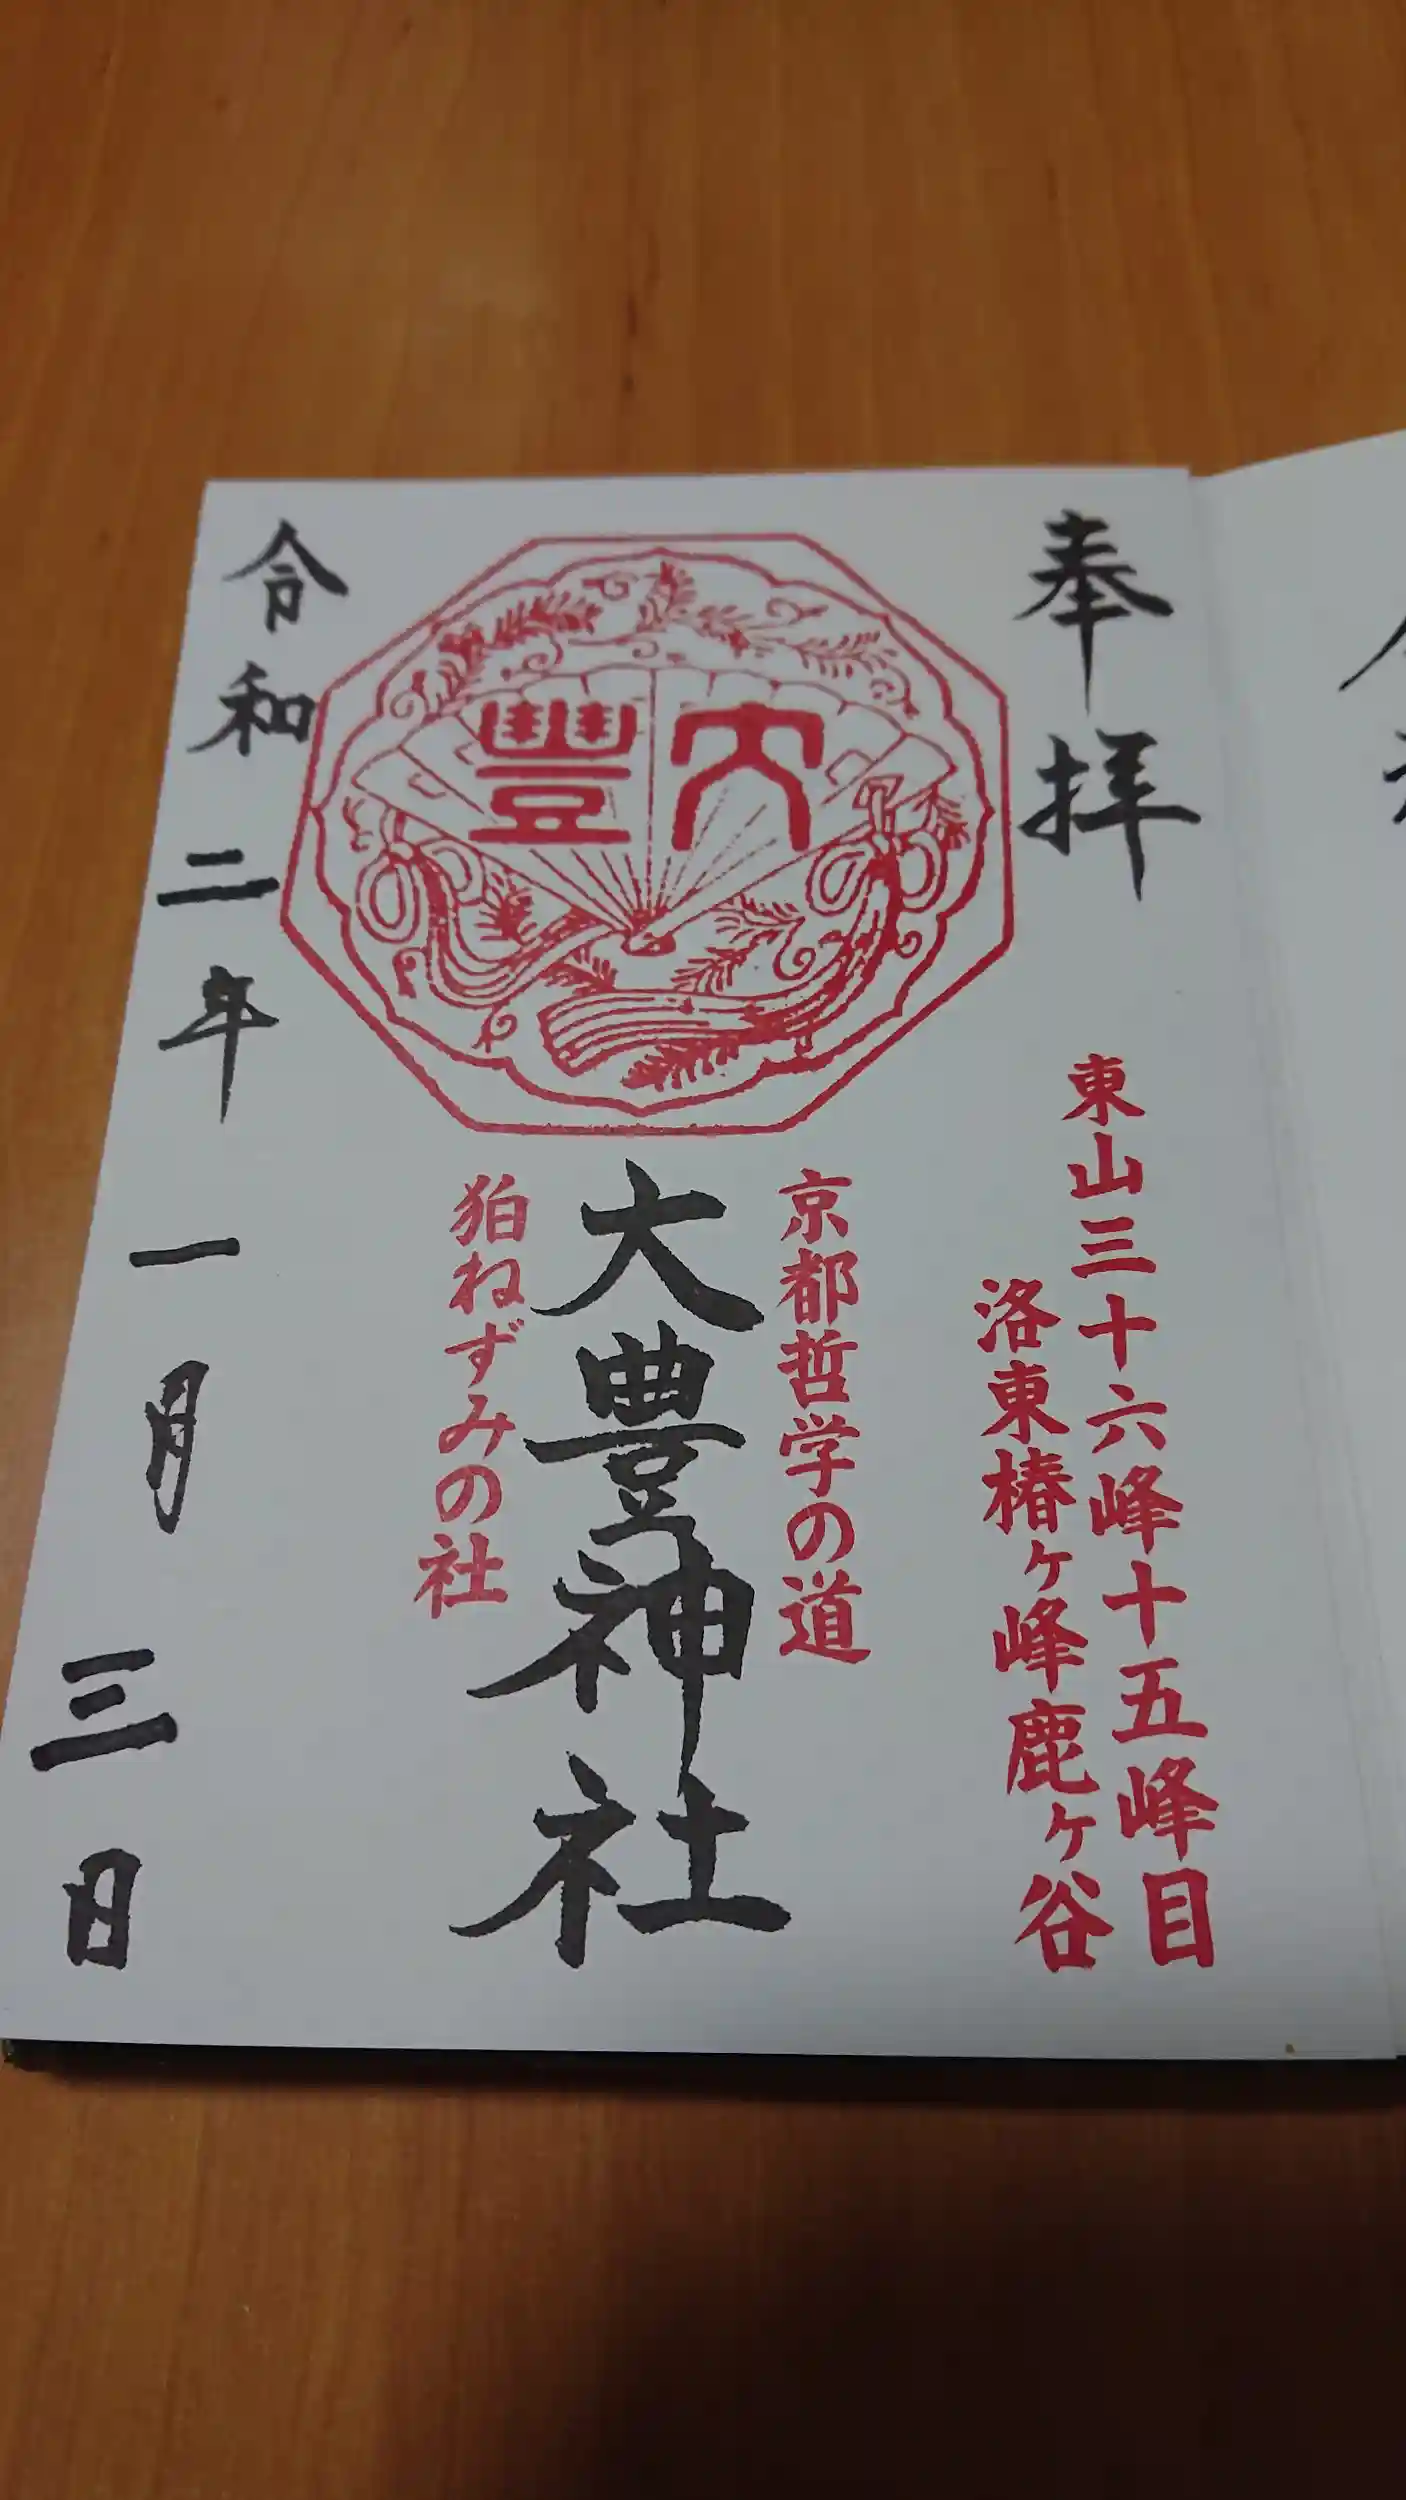 奉拝
東山三十六峰十五峰目
洛東椿ヶ峰鹿ヶ谷
大豐
京都哲学の道
大豊神社
狛ねずみの社
令和二年一月三日